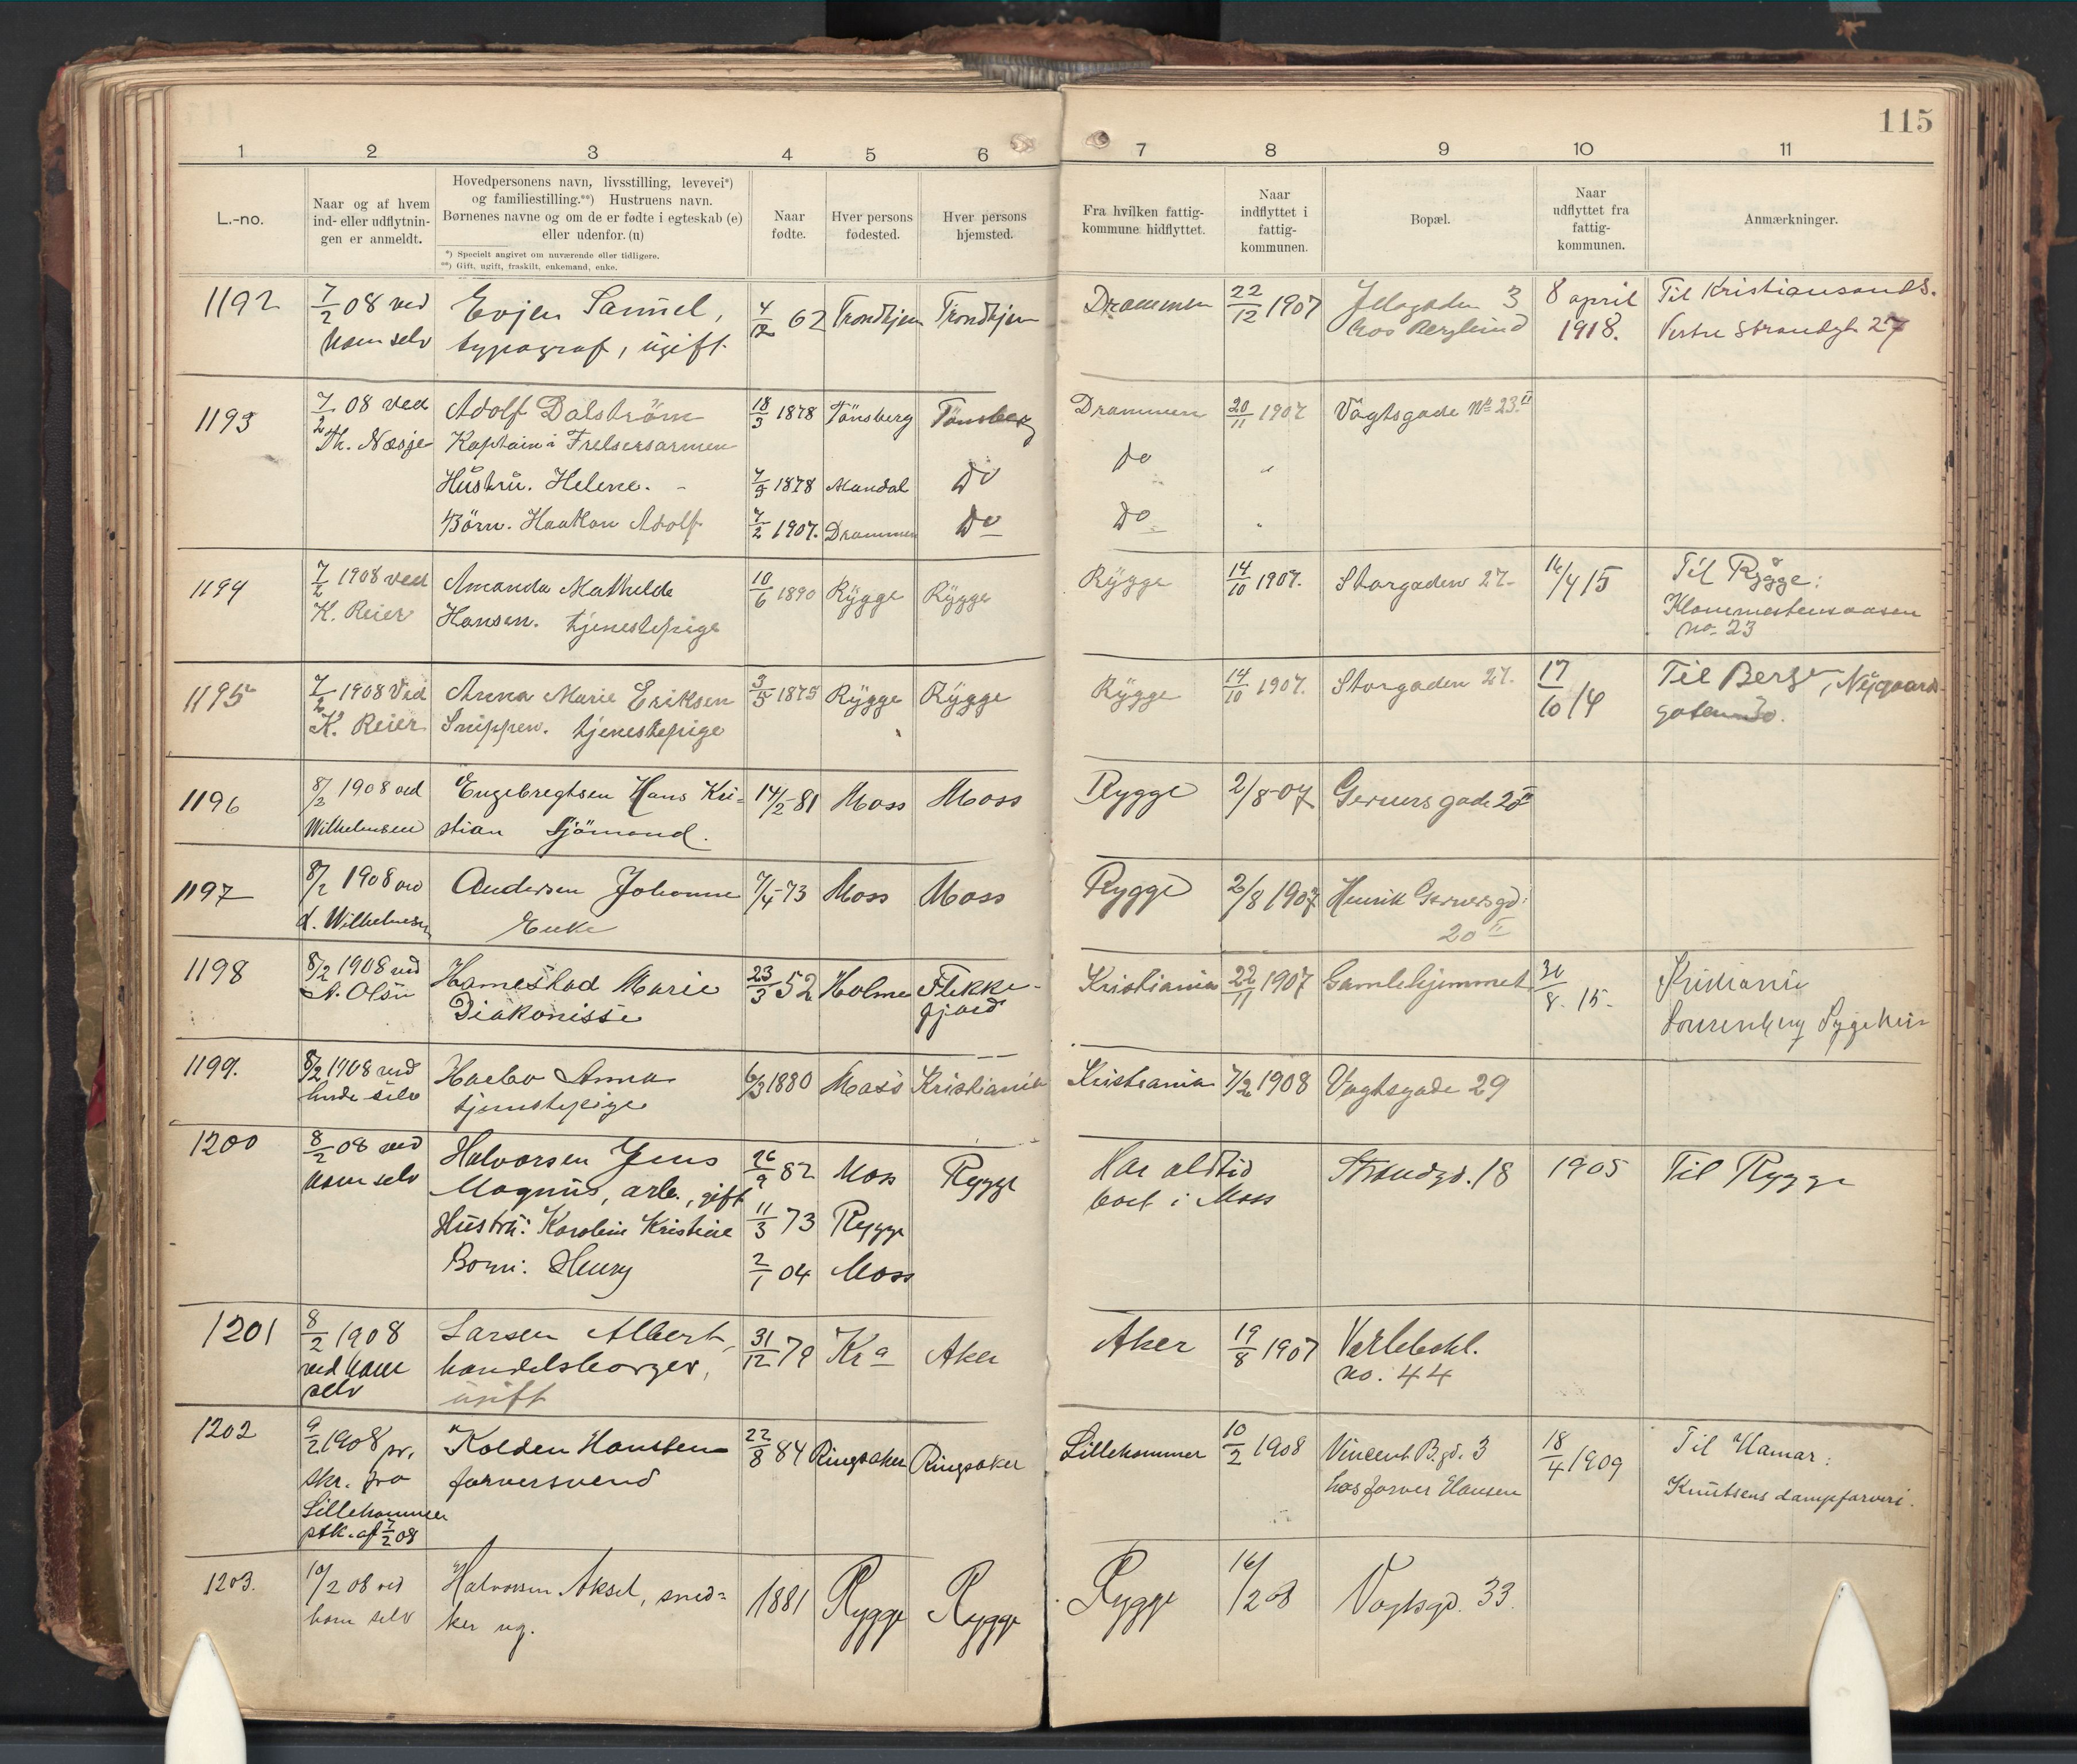 115
1 2 3 4 5 6 7 8 9 10 11
L.-no.
Naar og af hvem
ind- eller udflytnin-
gen er anmeldt.
Hovedpersonens navn, livsstilling, levevei*)
og familiestilling.**) Hustruens navn.
Børnenes navne og om de er fødte i egteskab (e)
eller udenfor. (u)
*) Specielt angivet om nuværende eller tidligere.
**) Gift, ugift, fraskilt, enkemand, enke.
Naar
fødte.
Hver persons
fødested.
Hver persons
hjemsted.
Fra hvilken fattig-
kommune hidflyttet.
Naar
indflyttet i
fattig-
kommunen.
Bopæl.
Naar
udflyttet fra
fattig-
kommunen.
Anmærkninger.
1192 7/2 08 ved Evjen Samuel, 62 Trondhjem Trondhjem Drammen 22/12 1907 3 8 april Til Kristiansand S.
ham selv typograf, ugift. hos Berglund 1918. Vestre Strandgt. 27
1193 7/2 08 ved Adolf Dalström 18/3 1878 Tönsberg Tönsberg Drammen 20/11 1907 Vogtsgade No 23 II
Th. Næsje Kaptain i Frelsersarmen
Hustru. Helene. - 7/9 1878 Mandal Do Do "
Börn. Haakon Adolf 7/2 1907. Drammen Do Do "
1194 7/2 1908 ved Amanda Mathilde 10/6 1890 Rygge Rygge Rygge 14/10 1907. Storgaden 27. 16/4 15 Til Rygge:
K. Reier Hansen. tjenestepige no. 23
1195 7/2 1908 Ved Anna Marie Eriksen 3/5 1875 Rygge Rygge Rygge 14/10 1907. Storgaden 27. 17/10 14 Til Berge, Nygaards
K. Reier Snippen. tjenestepige gaten 30.
1196 8/2 1908 ved Engebregtsen Hans Kri- 14/2-81 Moss Moss Rygge 2/8-07 Gerners gade 20 II
Wilhelmsen stian Sjömand.
1197 8/2 1908 ved Andersen Johanne 7/4-73 Moss Moss Rygge 2/8 1907 Henrik Gernersgd:
d. Wilhelmsen Enke 20 II
1198 8/2 1908 ved Hamestad Marie 23/3 52 Holme Flekke- Kristiania 22/11 1907 Gamlehjemmet 30/8. 15- Kristiania
A. Olsen Diakonisse fjord Lovisenberg Sygehus
1199. 8/2 1908 ved Anna 6/3 1880 Moss Kristiania Kristiania 7/2 1908 Vogtsgade 29
hende selv tjenestepige
1200 8/2 08 ved Halvorsen Jens 26/9 82 Moss Rygge Har altid Strandgd. 18 1905 Til Rygge
ham selv Magnus, arb., gift boet i Moss
Hustru: Karoline Kristine 11/3 73 Rygge
Barn: Henry 2/1 04 Moss
1201 8/2 1908 Larsen Albert, 31/12 79 Kra Aker Aker 19/8 1907 Varlebakl.
ved ham handelsborger, no. 44
selv ugift
1202 9/2 1908 pr. Kolden Hansten 22/8 84 Ringsaker Ringsaker Lillehammer 10/2 1908 Vincent B.gd. 3 18/4 1909 Til Hamar:
skr. fra farversvend hos farver Hansen Knutsens dampfarveri.
Lillehammer
pstk. af 7/2 08
1203. 10/2 08 ved Halvorsen Aksel, sned- 1881 Rygge Rygge Rygge 16/2 08 Vogtsgd. 33.
ham selv ker ug.